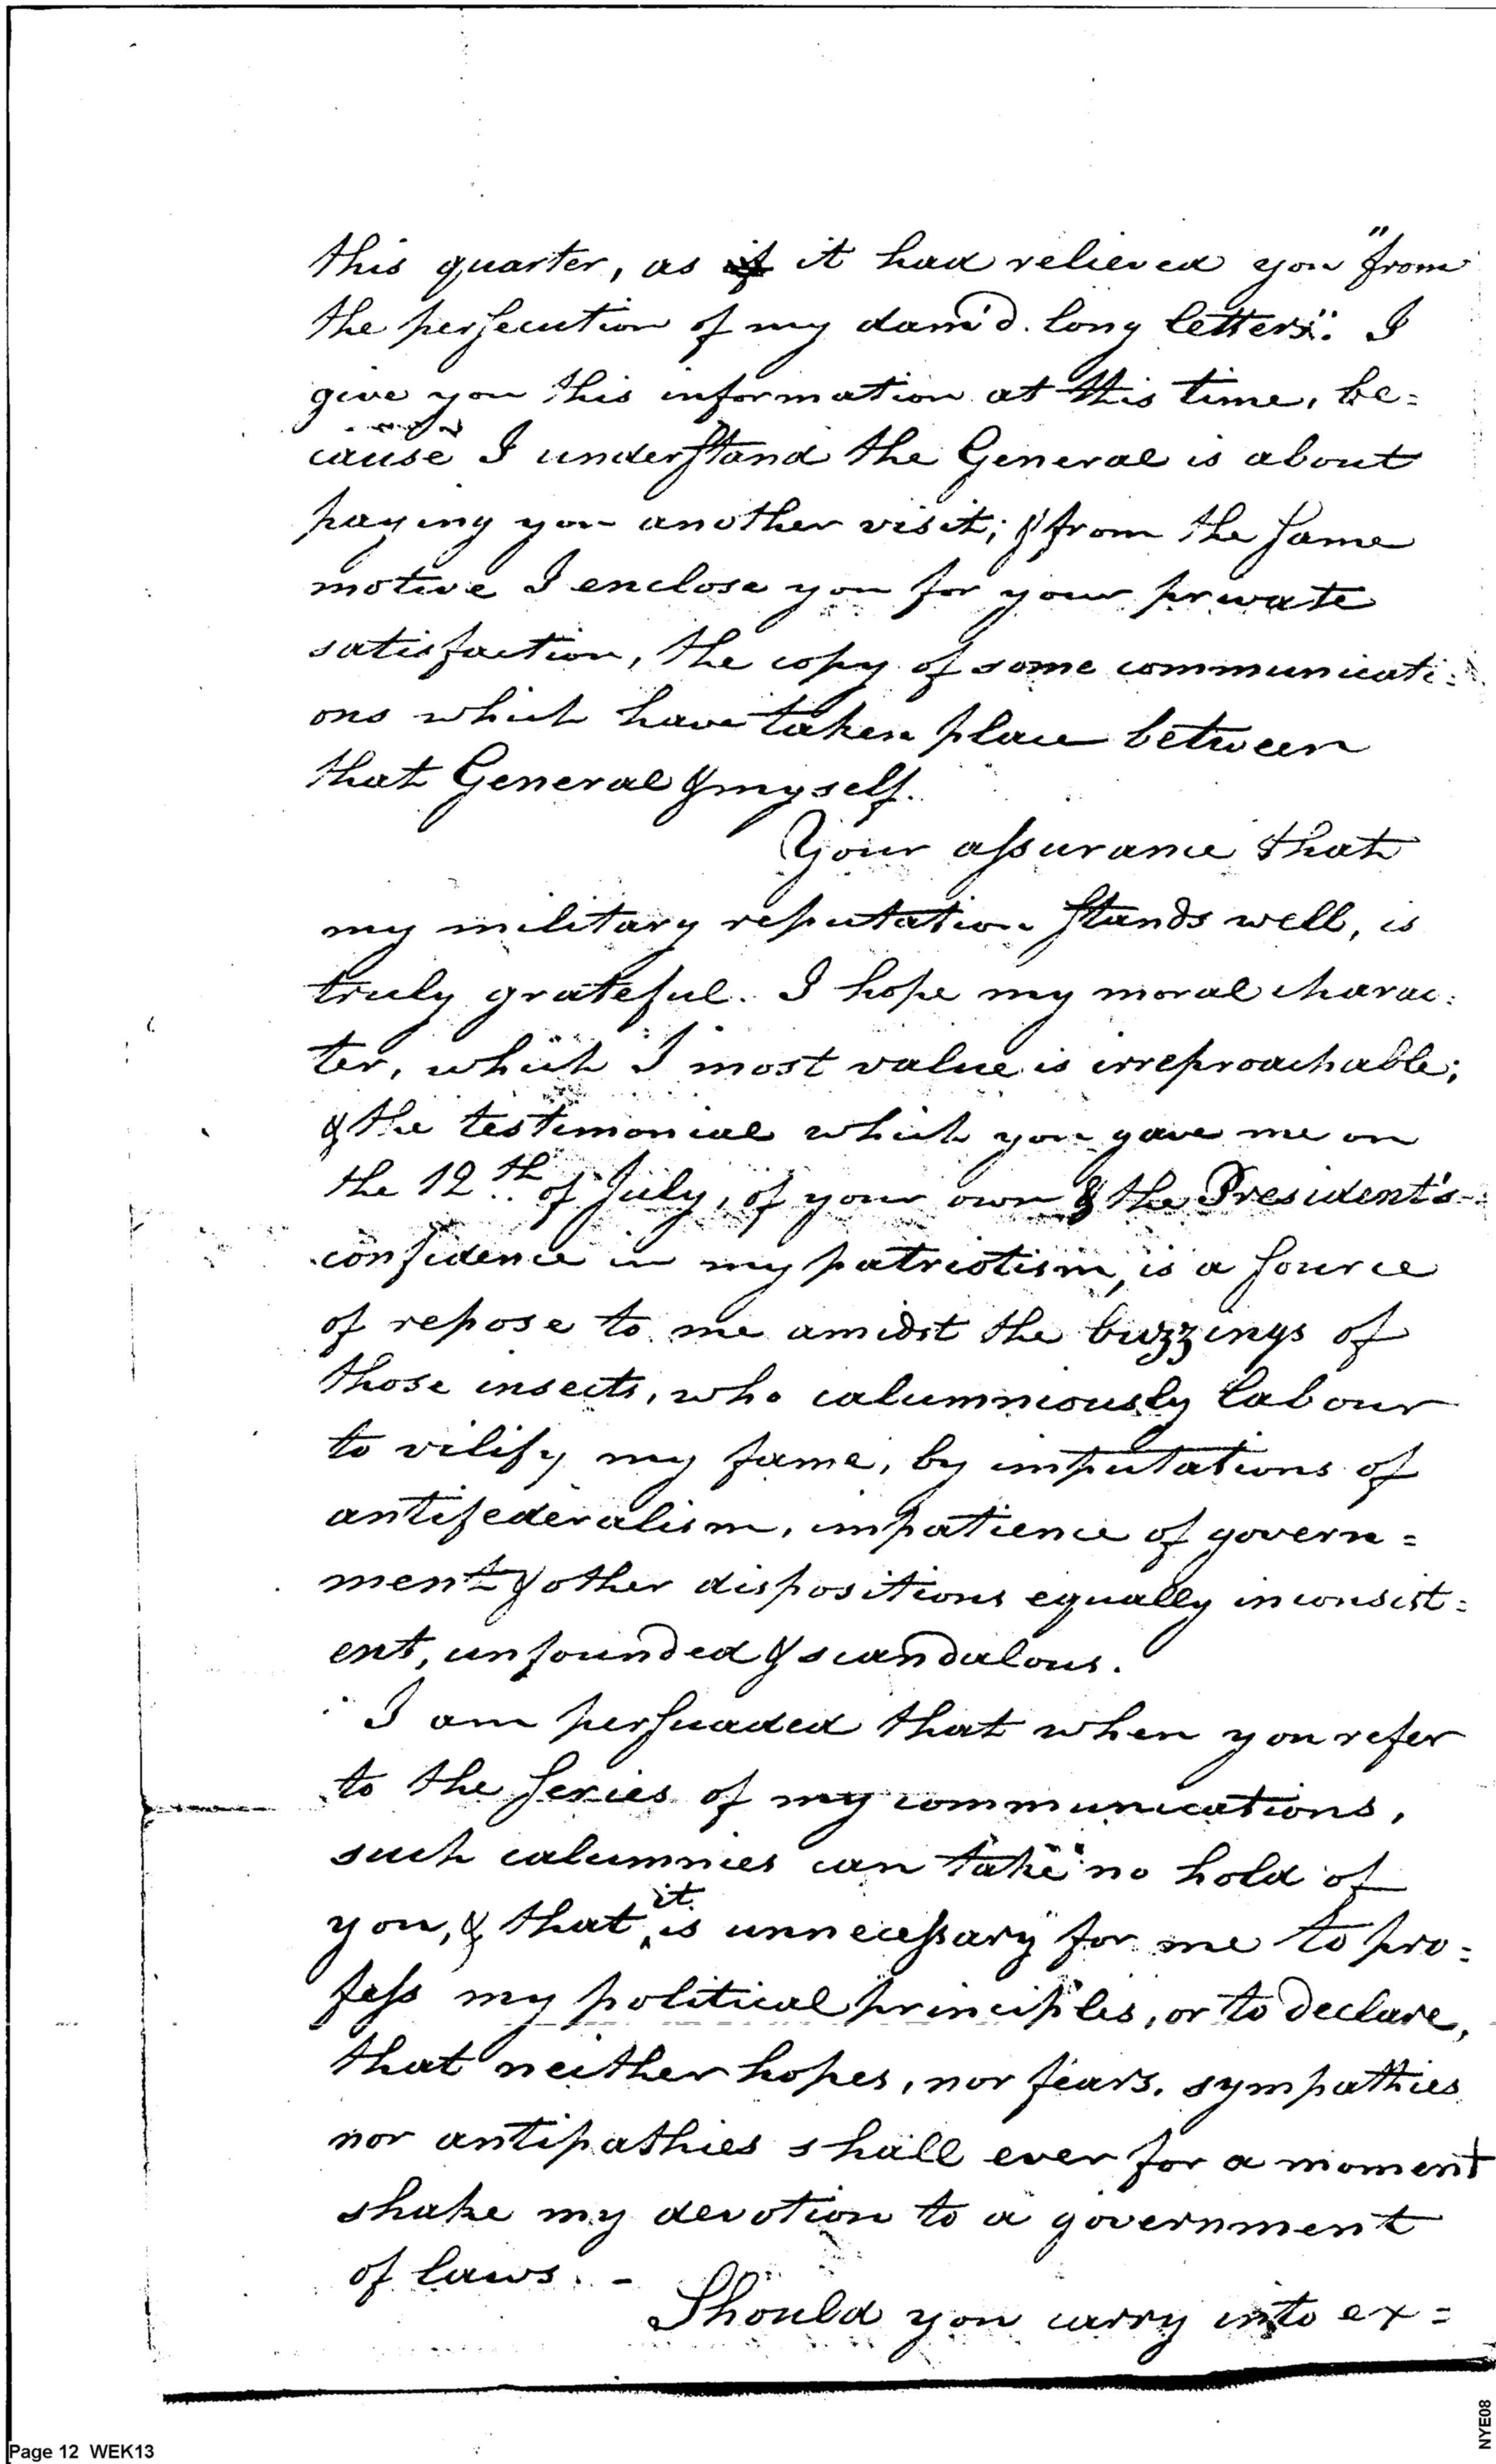 this quarter, as if it had relieved you "from
the persecution of my dam'd long letters". I
give you this information at this time, be=
cause I understand the General is about
paying you another visit; & from the same
motive I enclose you for your private
satisfaction, the copy of some communicati=
ons which have taken place between
that General & myself.
Your assurance that
my military reputation stands well, is
truly grateful. I hope my moral charac=
ter, which I most value is irreproachable;
& the testimonial which you gave me on
the 12th of July, of your own & the President's
confidence in my patriotism, is a source
of repose to me amidst the buzzings of
those insects, who calumniously labour
to vilify my fame, by imputations of
antifederalism, impatience of govern=
ment & other dispositions equally inconsist=
ent, unfounded & scandalous.
I am persuaded that when you refer
to the series of my communications,
such calumnies can take no hold of
you, & that it is unnecessary for me to pro=
fess my political principles, or to declare,
that neither hopes, nor fears, sympathies
nor antipathies shall ever for a moment
shake my devotion to a government
of laws. -
Should you carry into ex=
Page 12 WEK13
NYE08